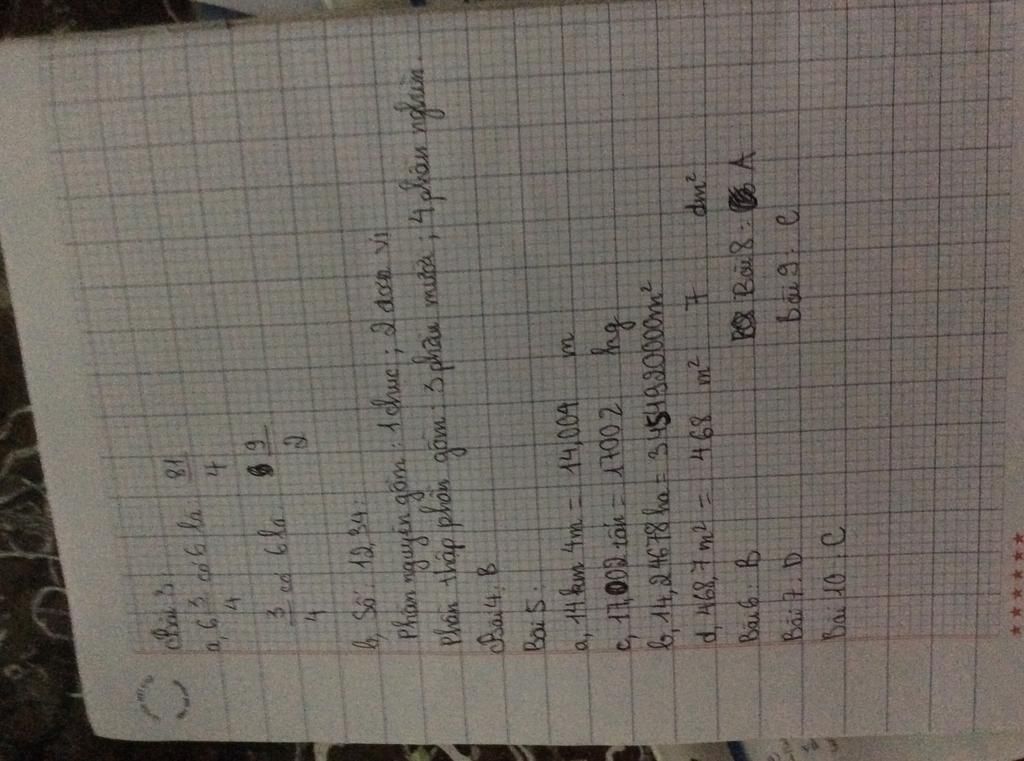 Bài 3:
a, 6 3/4 có 6 là: 81/4
3/4 có 6 là 9/2
b, Số: 12,34:
Phần nguyên gồm: 1 chục; 2 đơn vị
Phần thập phân gồm: 3 phần mười; 4 phần nghìn.
Bài 4: B
Bài 5:
a, 14km 4m = 14,004 m
c, 17,002 tấn = 17002 kg
b, 14,24678 ha = m²
d, 468,7 m² = 468 m² 7 dm²
Bài 6: B Bài 8: A
Bài 7: D Bài 9: C
Bài 10: C